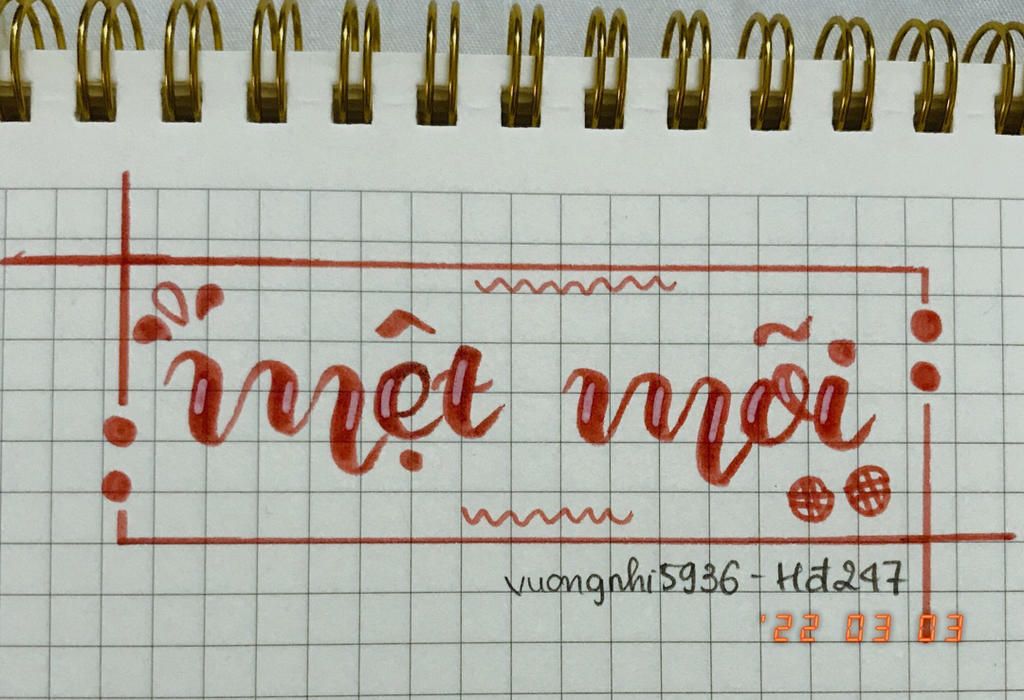 mệt mỗi
vuongnhi5936 - Hđ247
'22 03 03